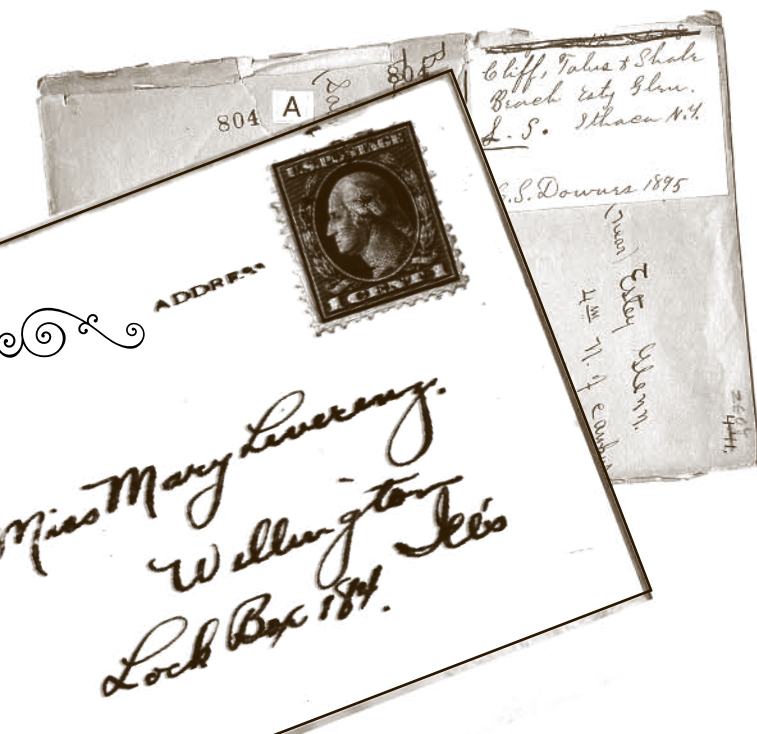 804 A
804
Cliff, Talus & Shale
Beach Esty Glen.
L. S. Ithaca N.Y.
S. Downes 1895
(near) Estey Glenn.
4 m N. of
44.
U.S. POSTAGE
1 CENT 1
ADDRESS
Miss Mary Leverenz.
Wellington
Ill's
Lock Box 184.